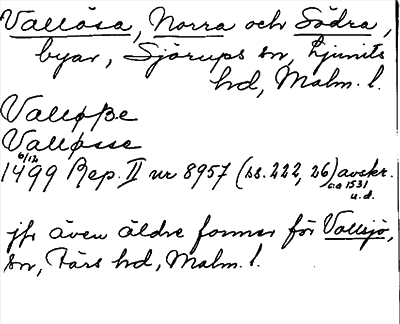 Vallösa, Norra och Södra,
byar, Sjörups sn, Ljunits
hd, Malm. l.
Valløsße
Valløsse
6/12
1499 Rep. II nr 8957 (ss. 222, 26) avskr.
ca 1531
u.d.
jfr även äldre former för Vallsjö,
sn, Färs hd, Malm. l.